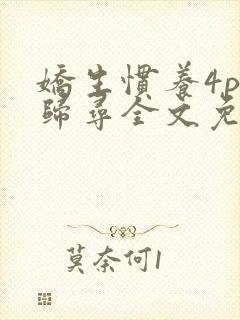 嬌生慣養4p
歸尋全文免
莫奈何1